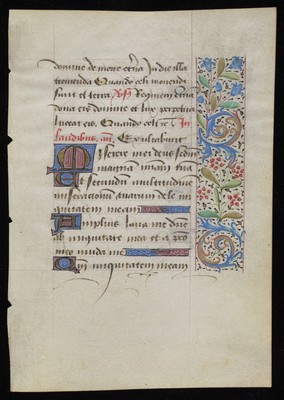 domine de morte etña In die illa
tremenda Quando celi movendi
sunt et terra. Vs Requiem etñam
dona eis domine et lux perpetua
luceat eis. Quando celi ... In
laudibus. añ. Exultabunt
Miserere mei deus scdm
magnam miam tua
Et secundū multitudinē
miserationū tuarum dele ini
quitatem meam
Amplius lava me dñe
ab iniquitate mea et a pcō
meo munda me
Qm̄ iniquitatem meam